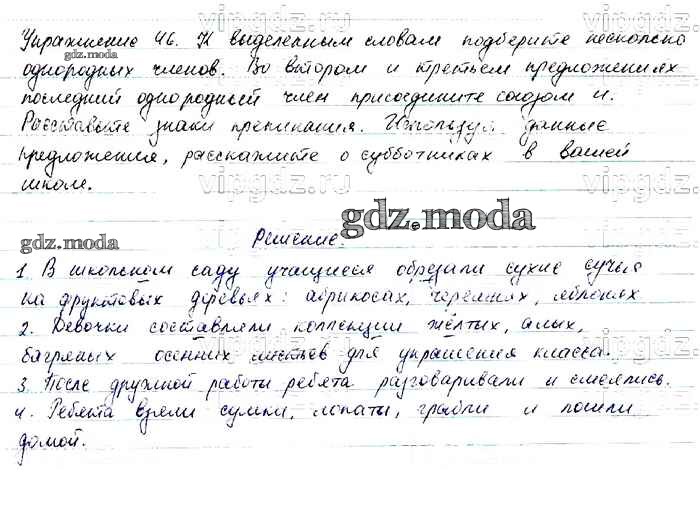 vipgdz.ru vipgdz.ru
Упражнение 46. К выделенным словам подберите несколько
gdz.moda
однородных членов. Во втором и третьем предложениях
последний однородный член присоедините союзом и.
Расставьте знаки препинания. Используя данные
предложения, расскажите о субботниках в вашей
школе.
vipgdz.ru vipgdz.ru
gdz.moda
gdz.moda Решение.
1. В школьном саду учащиеся обрезали сухие сучья
на фруктовых деревьях: абрикосах, черешнях, яблонях
2. Девочки составляли коллекции жёлтых, алых,
багряных осенних листьев для украшения класса.
3. После дружной работы ребята разговаривали и смеялись.
4. Ребята взяли сумки, лопаты, грабли и пошли
домой.